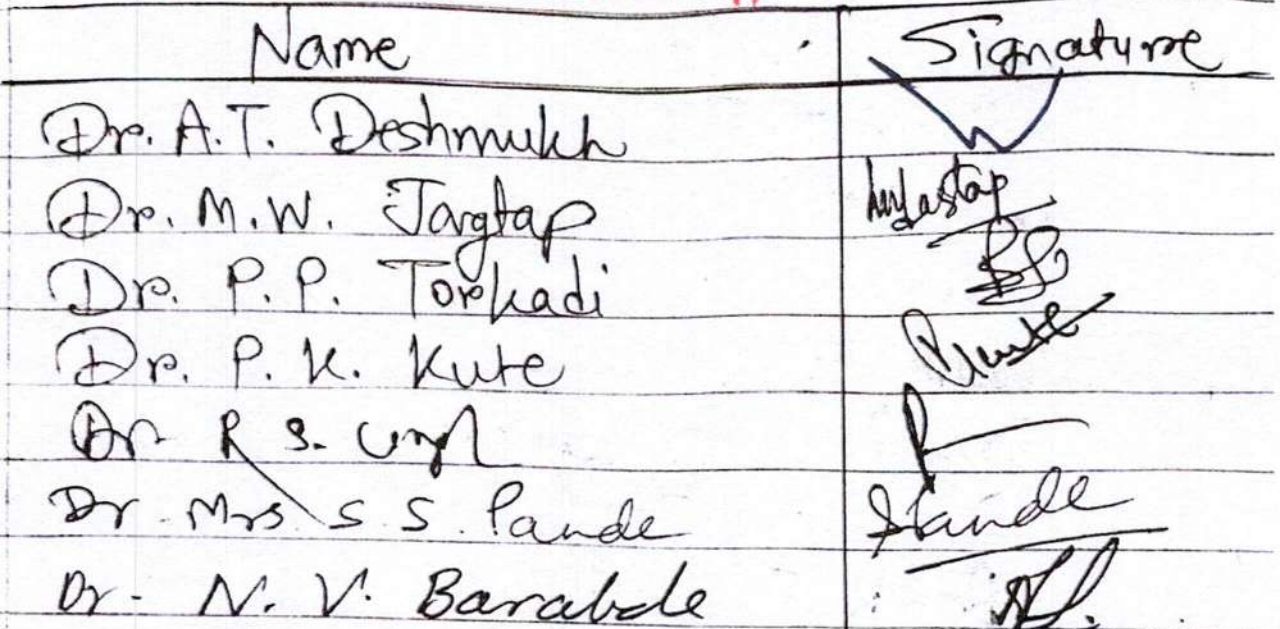 Name Signature
Dr. A.T. Deshmukh
Dr. M.W. Jagtap
Dr. P.P. Torkadi
Dr. P. K. Kute
Dr. R S.
Dr. Mrs S S. Pande
Dr. N. V. Barabde